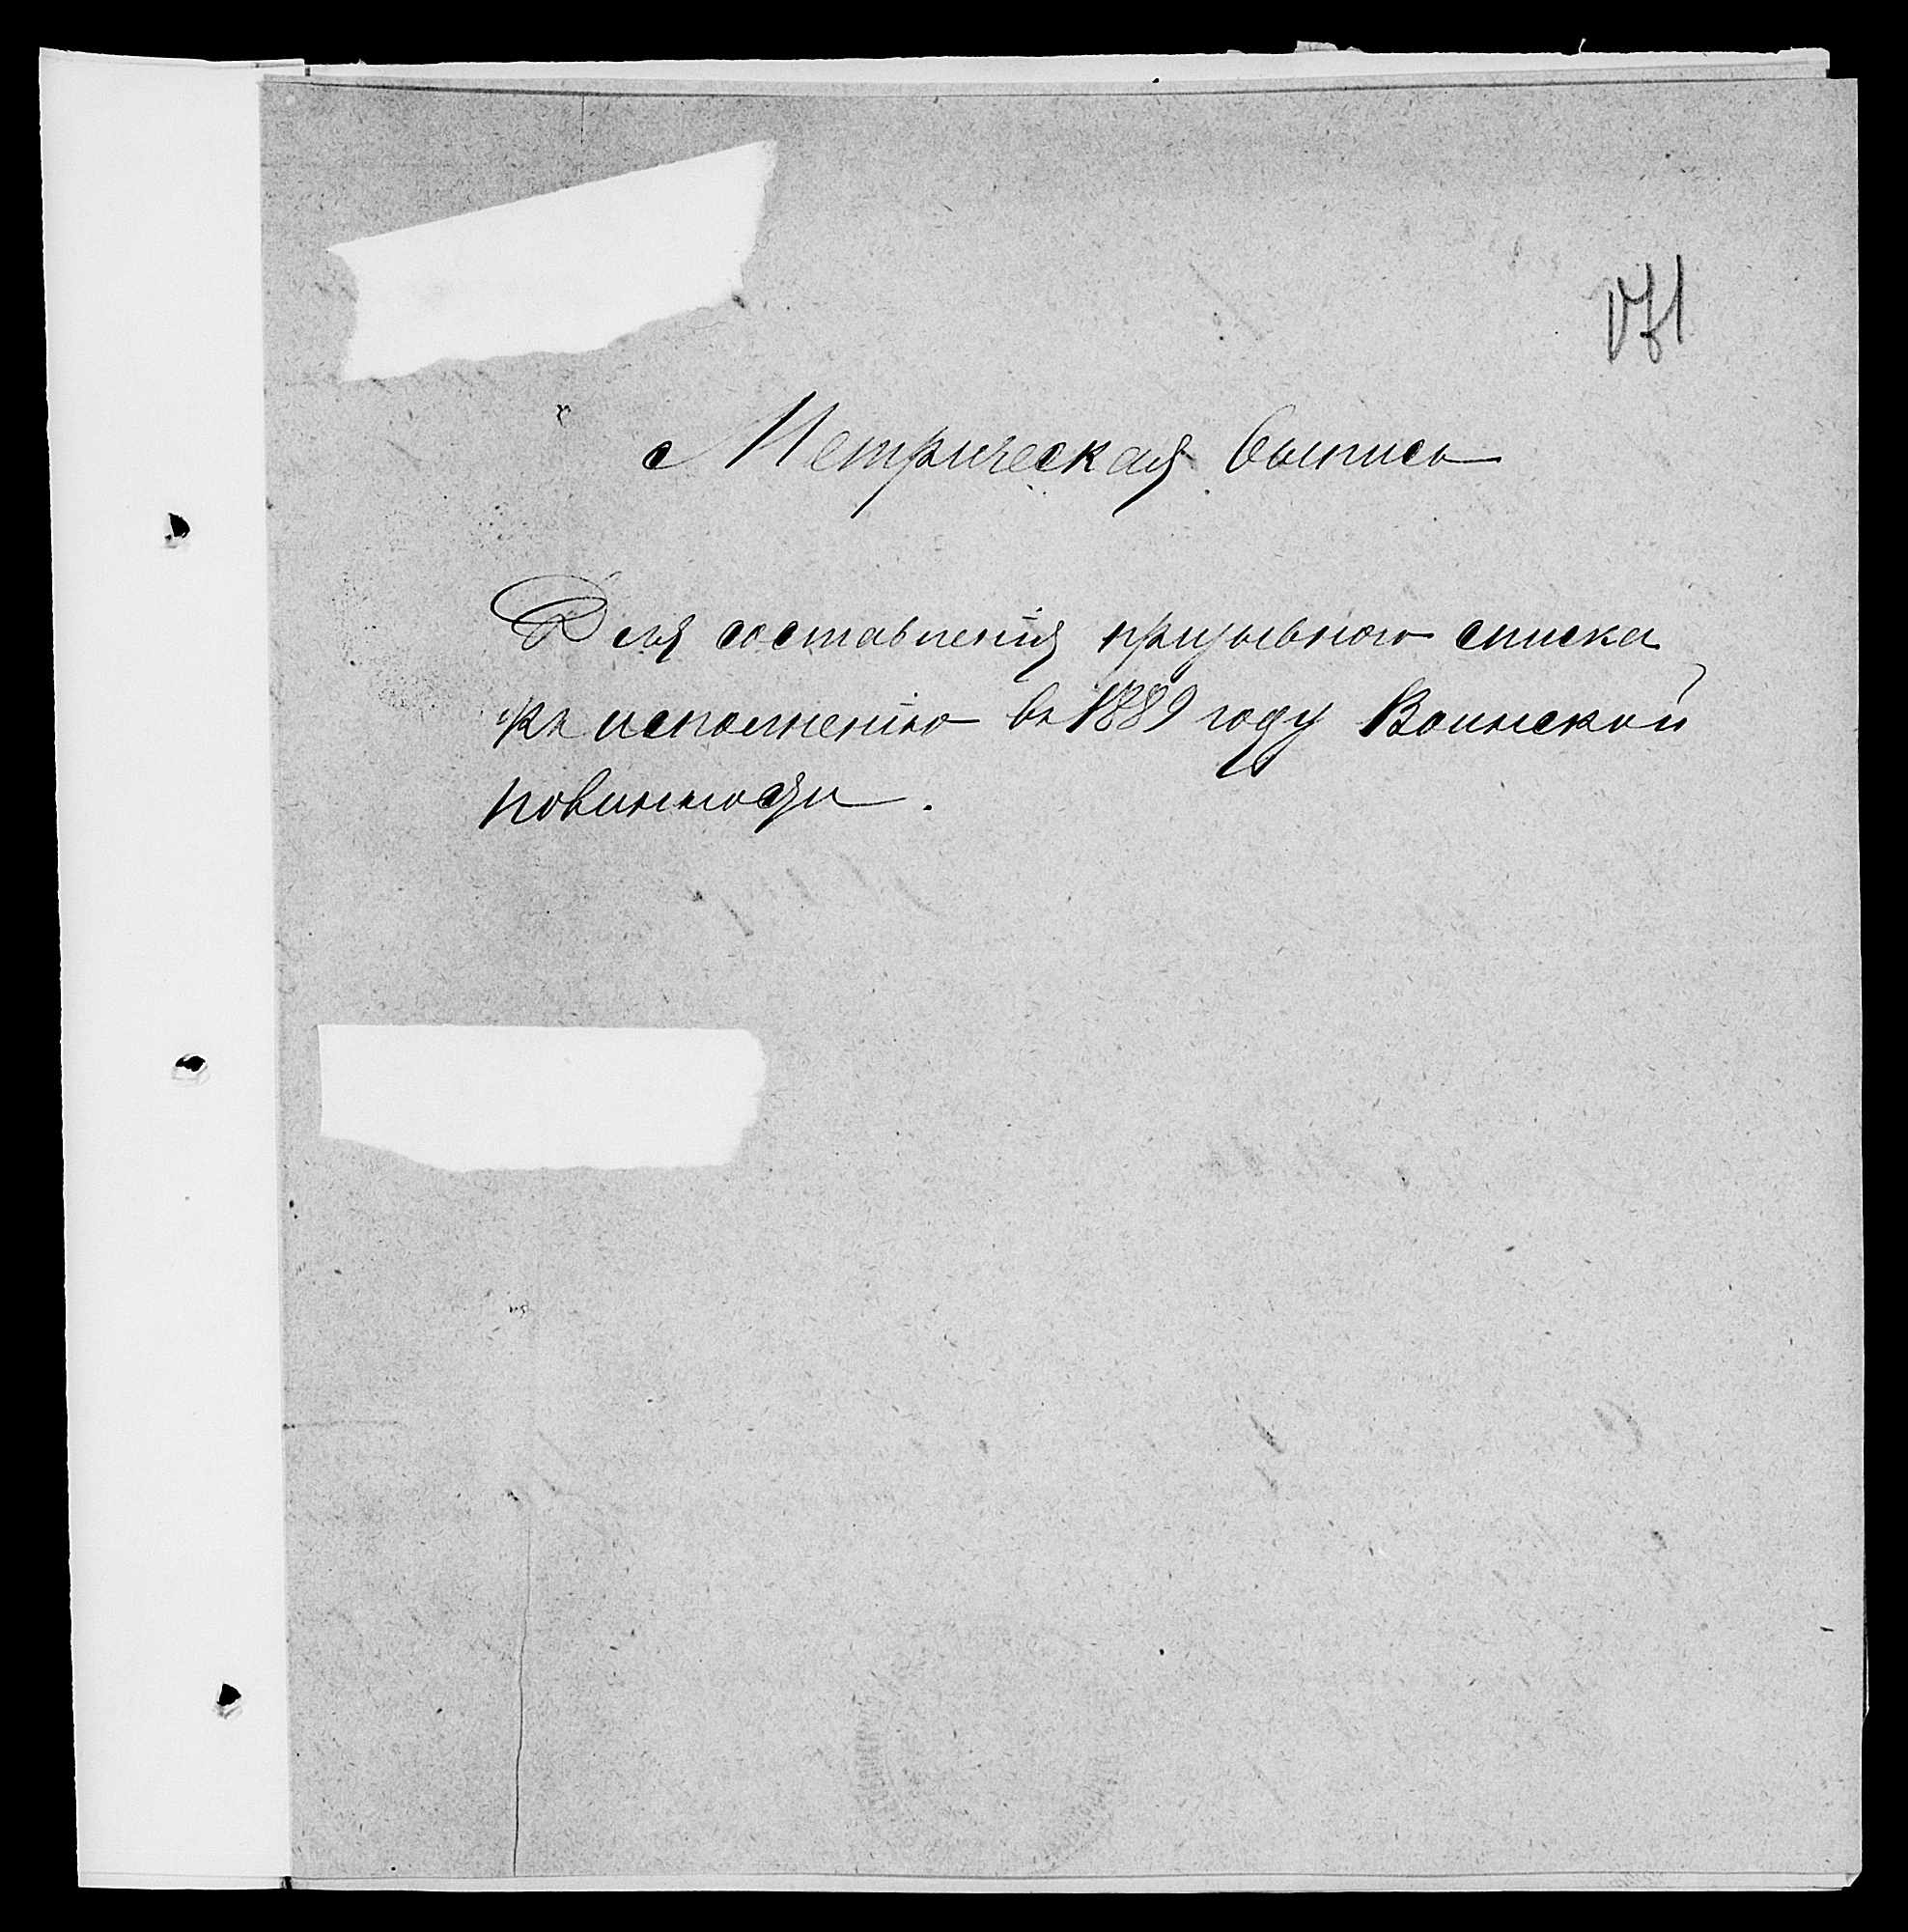 171
Метрическая выпись
Для составленія призывного списка
къ исполненію въ 1889 году Воинской
повинности.